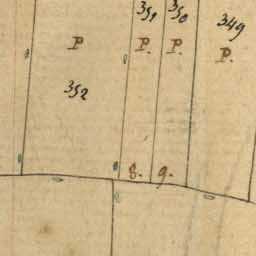 351 350 349
P P. P. P.
352
8. 9.